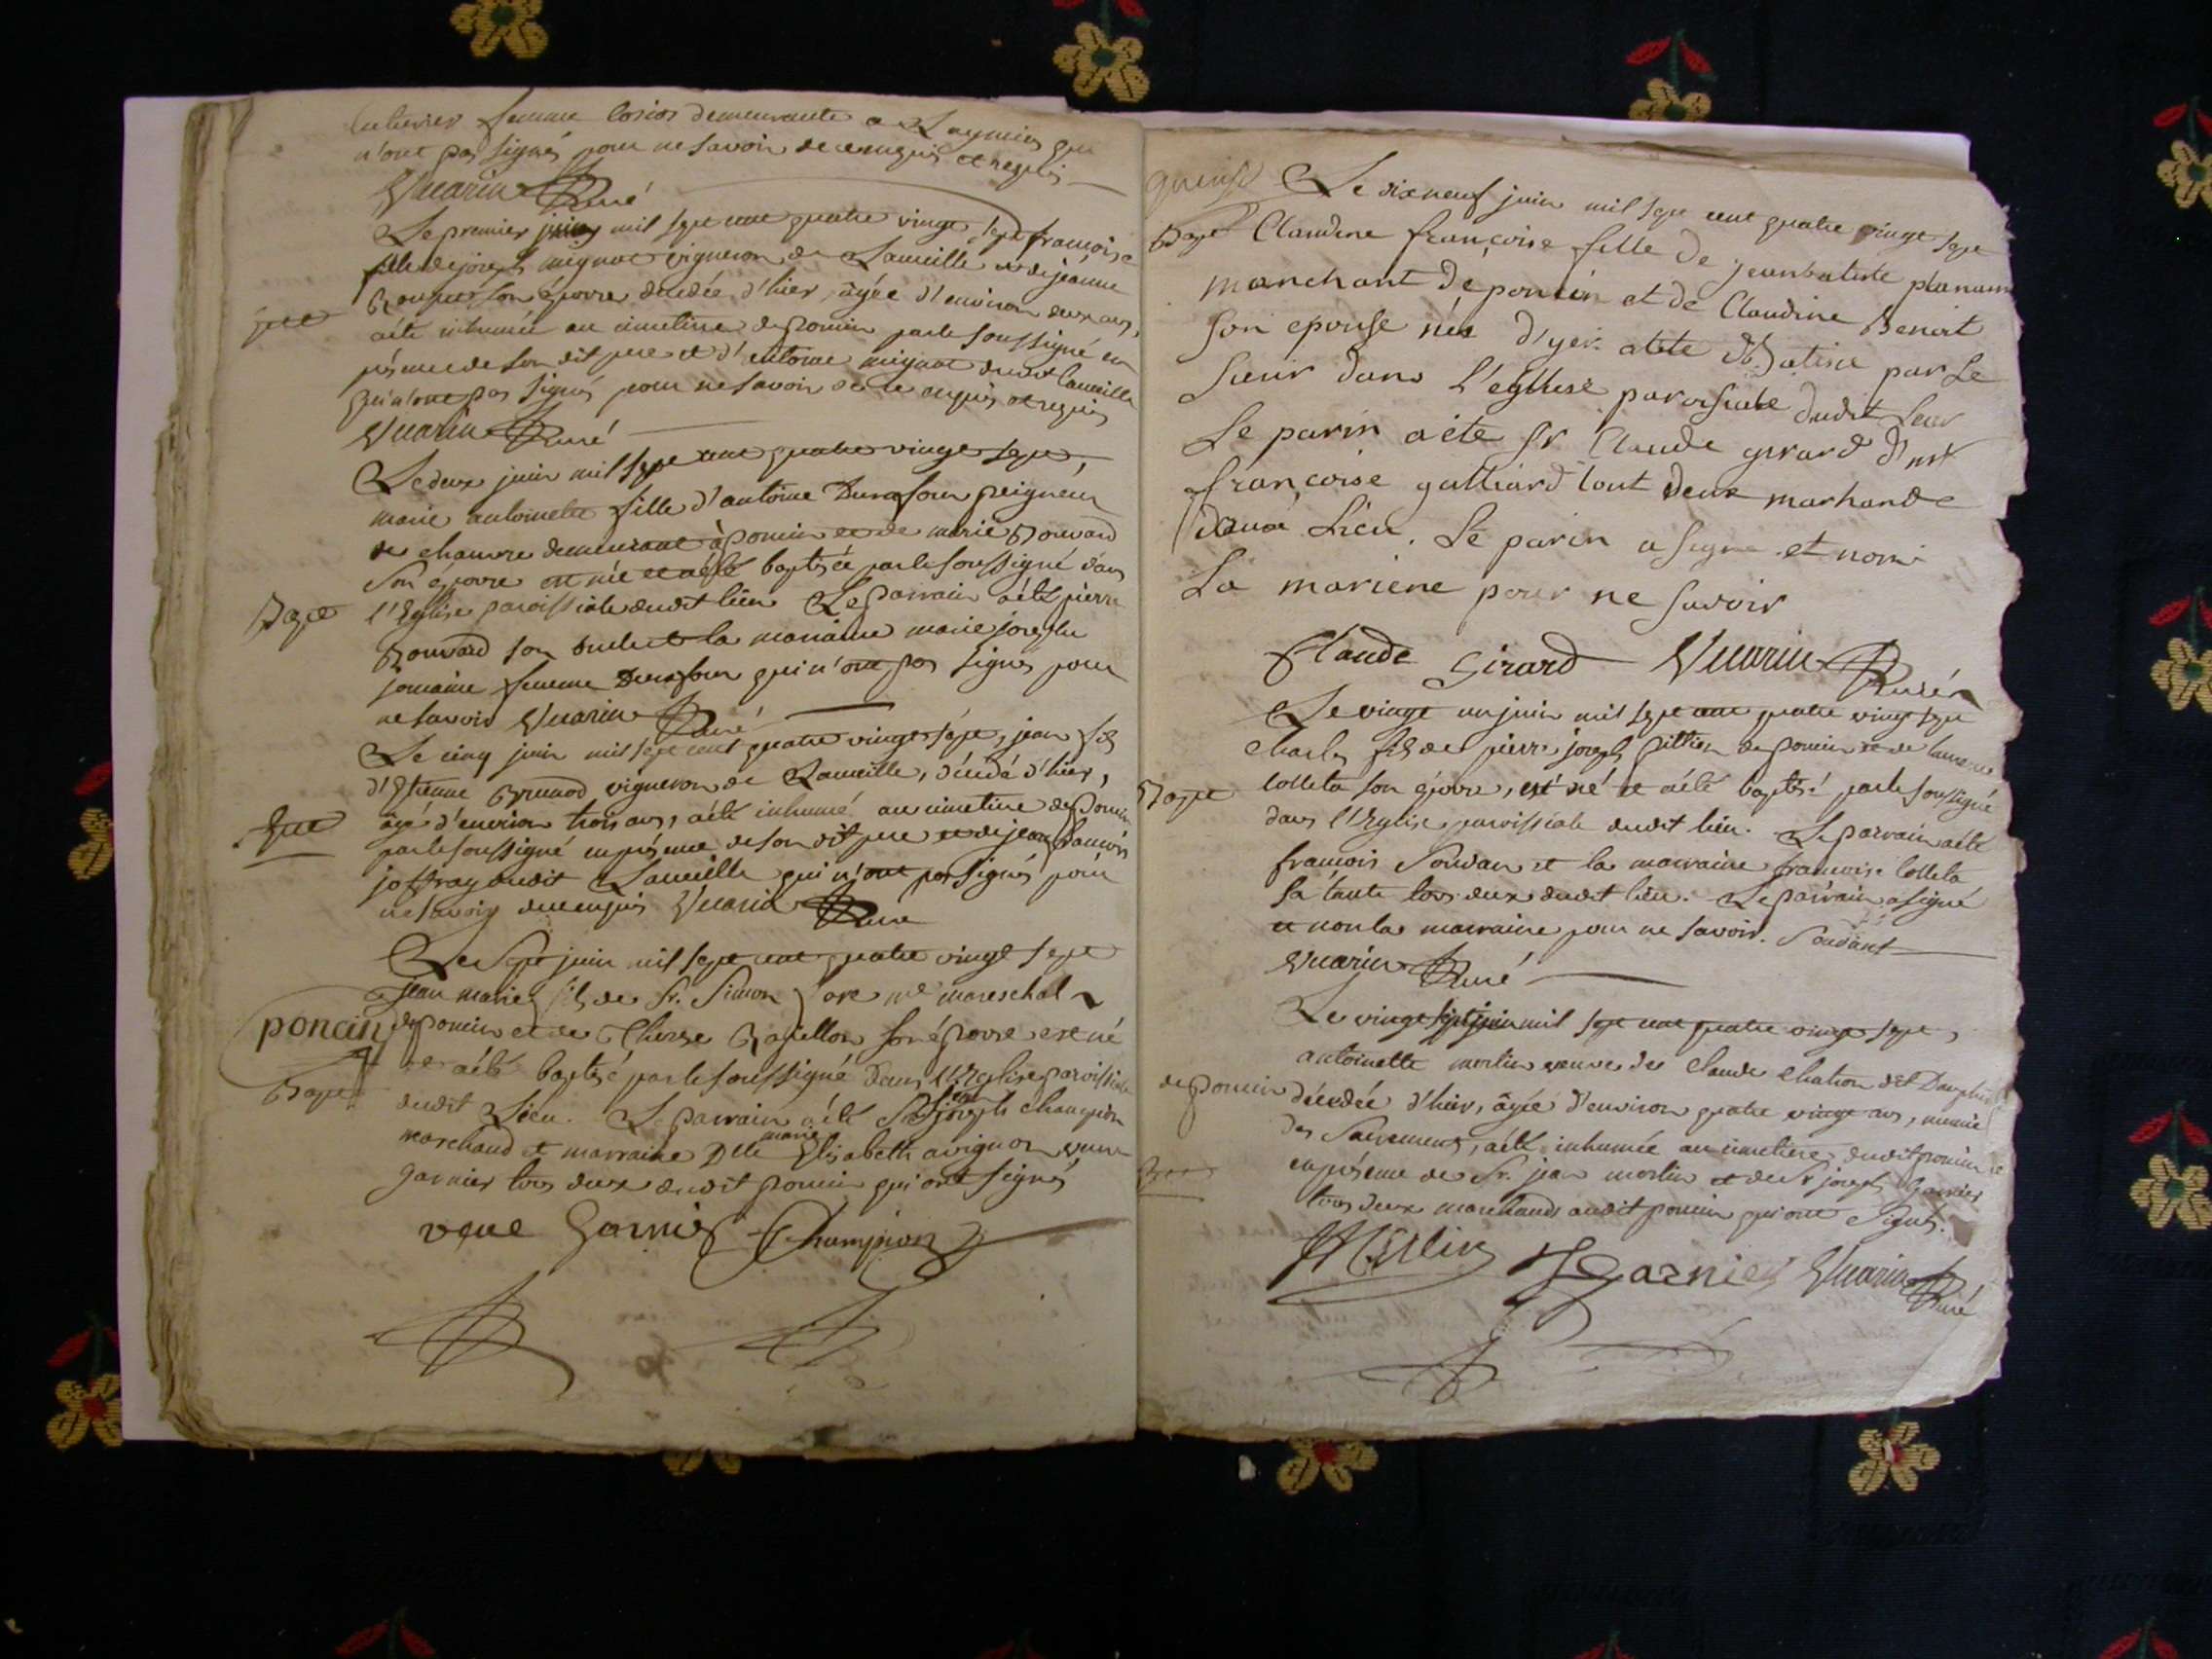 femme demeurante a qui
n'ont pas signés pour ne savoir de ce enquis et requis
Vuarin Curé
Le premier juin mil sept cent quatre vingt sept francoise
fille de joseph mignot vigneron de Lameille et de jeanne
son épouse décédée d'hier, âgée d'environ deux ans,
aété inhumée au cimetiere de poncin par le soussigné en
présence de son dit pere et d'antoine mignot dudit Lameille
qui n'ont pas signés pour ne savoir de ce enquis et requis
Vuarin Curé
Le deux juin mil sept cent quatre vingt sept,
marie antoinette fille d'antoine Durafour peigneur
de chanvre demeurant à poncin et de marie Bouvard
Son épouse est née et aété baptisée par le soussigné dans
Bapt l'Eglise paroissiale dudit lieu Le parrain aété pierre
Bouvard son et la marraine marie josephe
femme Durafour qui n'ont pas signés pour
ne savoir Vuarin Curé
Le cinq juin mil sept cent quatre vingt sept, jean fils
d'Etienne Brunod vigneron de Lameille, décédé d'hier,
âgé d'environ trois ans, aété inhumé au cimetiere de poncin
par le soussigné en présence de son dit pere et de jean francois
joffray dudit Lameille qui n'ont pas signés pour
ne savoir de ce enquis Vuarin Curé
Le Sept juin mil sept cent quatre vingt sept
jean marie fils de Sr. Simon me mareschal
poncin de poncin et de Therese Bapillon son épouse est né
et aété baptisé par le soussigné dans l'Eglise paroissiale
Bapt dudit Lieu. Le parrain aété Sr joseph Champion
marchand et marraine Dlle marie Elisabeth avignon veuve
garnier tous deux dudit poncin qui ont signés
veue Garnier Champion
Le dixneuf juin mil sept cent quatre vingt sept
Bapt Claudine françoise fille de jeanbatiste
marchant de poncin et de Claudine Benoit
son epouse née d'yer. aété Batisé par le
Sieur dans L'eglhise paroisiale dudit leur
Le parin aété Sr Claude girard d'
françoise galliard tout deux marhande
Lieu. Le parin a signe et nom
La mariene pour ne savoir
Claude Girard Vuarin Curé
Le vingt un juin mil sept cent quatre vingt sept
Charles fils de pierre joseph pittion de poncin et de
Bapt Colleta son épouse, est né et aété baptisé par le soussigné
dans l'Eglise paroissiale dudit lieu. Le parrain aété
francois Soudan et la marraine francoise Colleta
sa tante tous deux dudit lieu. Le parrain a signé
et non la marraine pour ne savoir. Soudant
Vuarin Curé
Le vingt sept juin mil sept cent quatre vingt sept,
antoinette morlin veuve de Claude Chation dit Dauphin
de poncin décédée d'hier, âgée d'environ quatre vingt ans, munie
des Sacrements, aété inhumée au cimetiere dudit poncin
en présence de Sr. jean morlin et de Sr joseph Garnier
tous deux marchands audit poncin qui ont Signés.
Morlin Garnier Vuarin Curé